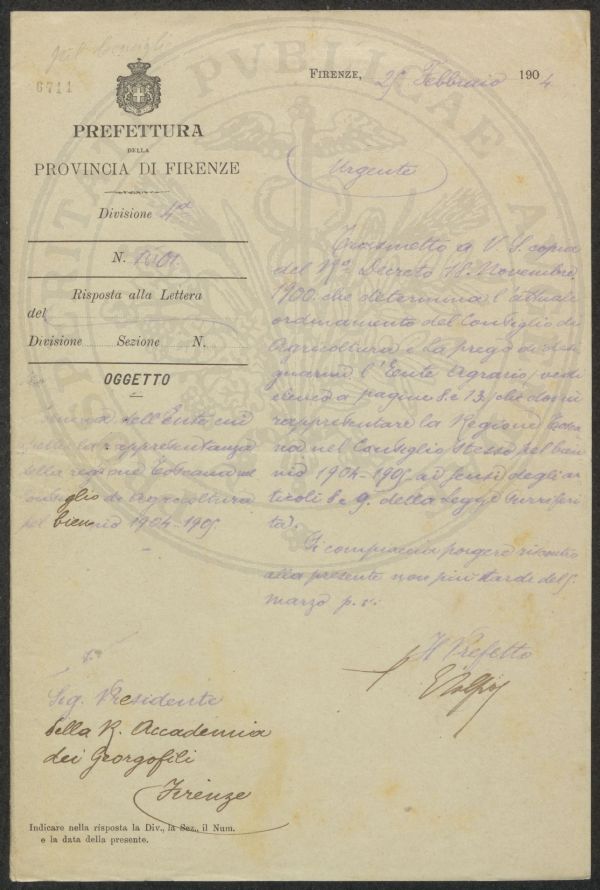 6711
FIRENZE, 25 Febbraio 1904
PREFETTURA
DELLA
PROVINCIA DI FIRENZE
Divisione 4ª
N.
Risposta alla Lettera
del
Divisione Sezione N.
OGGETTO
dell'Ente cui
rappresentanza
della regione Toscana nel
Consiglio di Agricoltura
pel biennio 1904-1905
Urgente
Trasmetto a V. S. copia
del Decreto 18 Novembre
1900 che determina l'attuale
ordinamento del Consiglio di
Agricoltura e La prego di
l'Ente Agrario (vedi
elenco a pagine 8 e 13) che dovrà
rappresentare la Regione Tosca
na nel Consiglio stesso pel bien
nio 1904-1905 ai sensi degli ar
ticoli 8 e 9 della Legge surriferi
ta.
Si compiaccia porgere riscontro
alla presente non più tardi del 5
marzo p. v.
Il Prefetto
Sig. Presidente
della R. Accademia
dei Georgofili
Firenze
Indicare nella risposta la Div., la Sez., il Num.
e la data della presente.
PVBLICAE